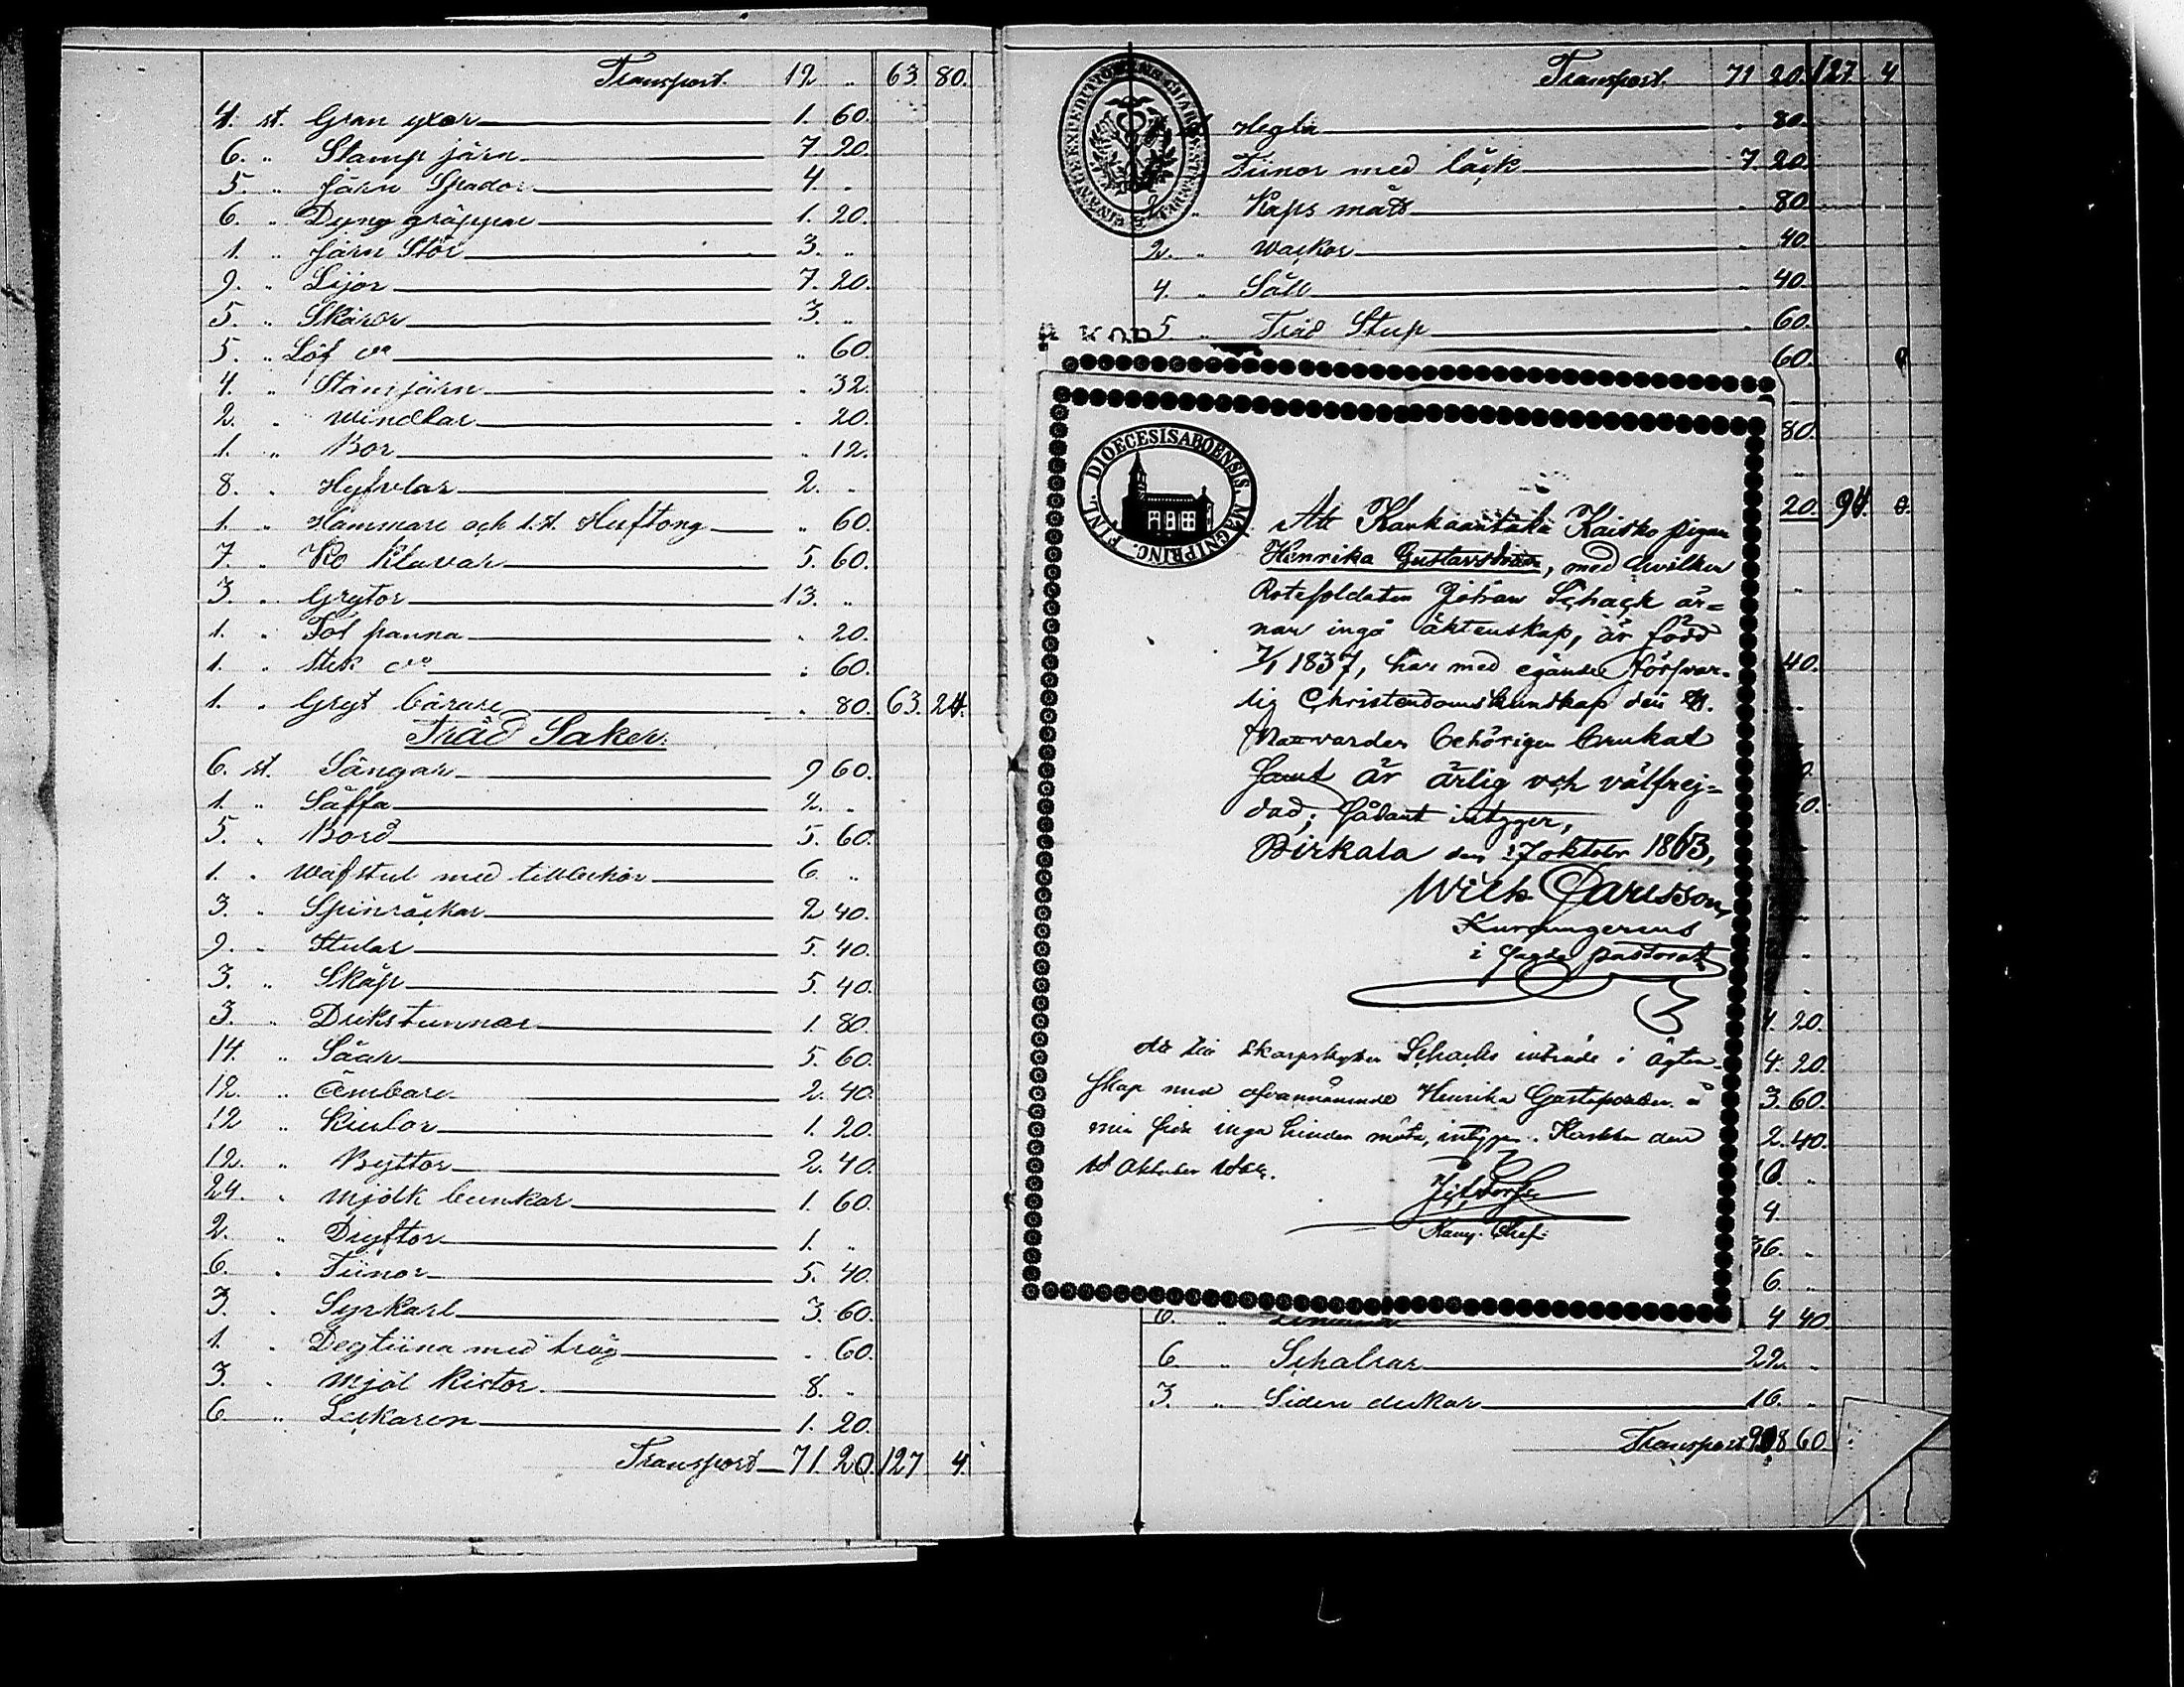 Transport. 12 .. 63. 80.
4. st. Gran yxor 1. 60.
6. .. Stamp järn 7. 20.
5. .. Järn Spador 4. .
6. .. Dyng gräppar 1. 20.
1. .. Järn Stör 3. ..
9. .. Lijor 7. 20.
5. .. Skäror 3. ..
5. .. Löf do .. 60.
4. .. Stämjärn . 32.
2. . windlar . 20.
1. .. Bor .. 12.
8. . Hyfvlar 2. .
1. .. Hammare och 1. st. Huftong .. 60.
7. . Ko Klavar 5. 60.
3. . Grytor 13. ..
1. . panna . 20.
1. . Stek do . 60.
1. . Gryt bärare . 80. 63. 24.
Träd Saker.
6. st. Sängar 9 60.
1. .. Säffa 2. ..
5. . Bord 5. 60.
1. . Wäfstol med tillbehör 6. ..
3. . Spinråckar 2 40.
9. . Stolar 5. 40.
3. .. Skåp 5. 40.
3. . Drikstunnor 1. 80.
14. .. Såar 5. 60.
12. .. Ämbare 2. 40.
12 .. Kiulor 1. 20.
12. .. Byttor 2. 40.
24. . Mjölk bunkar 1. 60.
2. .. Dryftor 1. ..
6. . Tiinor 5. 40.
3. . Syrkarl 3. 60.
1. . Degtiina med tråg . 60.
3. . Mjöl Kistor 8. ..
6. .. Leckaren 1. 20.
Transport 71. 20. 127 4.
Transport 71 20. 127. 4
Hegla . 80.
Tiinor med läck 7. 20.
2. .. Kaps mått . 80.
2. .. Wackor . 40.
4. .. Såll . 40.
5 .. Träd Stup . 60.
60.
80.
20. 94.
40.
FINL. DIOECESIS ABOENSIS. MAGNI PRINC.
Att Kankaantaka Kaisko pigan
Henrika Gustavsdotter, med hvilken
Rotesoldaten Johan Schack är-
nar ingå äktenskap, är född
7/1 1837, har med egande försvar-
lig Christendomskunskap den H.
Nattvarden behörigen brukat
samt är ärlig och välfrej-
dad; sådant intyger,
Birkala den 17 oktober 1863,
Wilh. Carlsson,
i sagda pastorat
Skarpskytten Schacks inträde i ägten-
skap med ofvannämnde Henrika å
min sida inga hinder möta, intygar. den
18 Oktober
Komp. Chef.
4. 20.
4. 20.
3. 60.
2. 40.
6. ..
4.
6. ..
6. .. 4 40.
6 .. Schalrar 22. ..
3. .. Siden dukar 16. ..
Transport 60